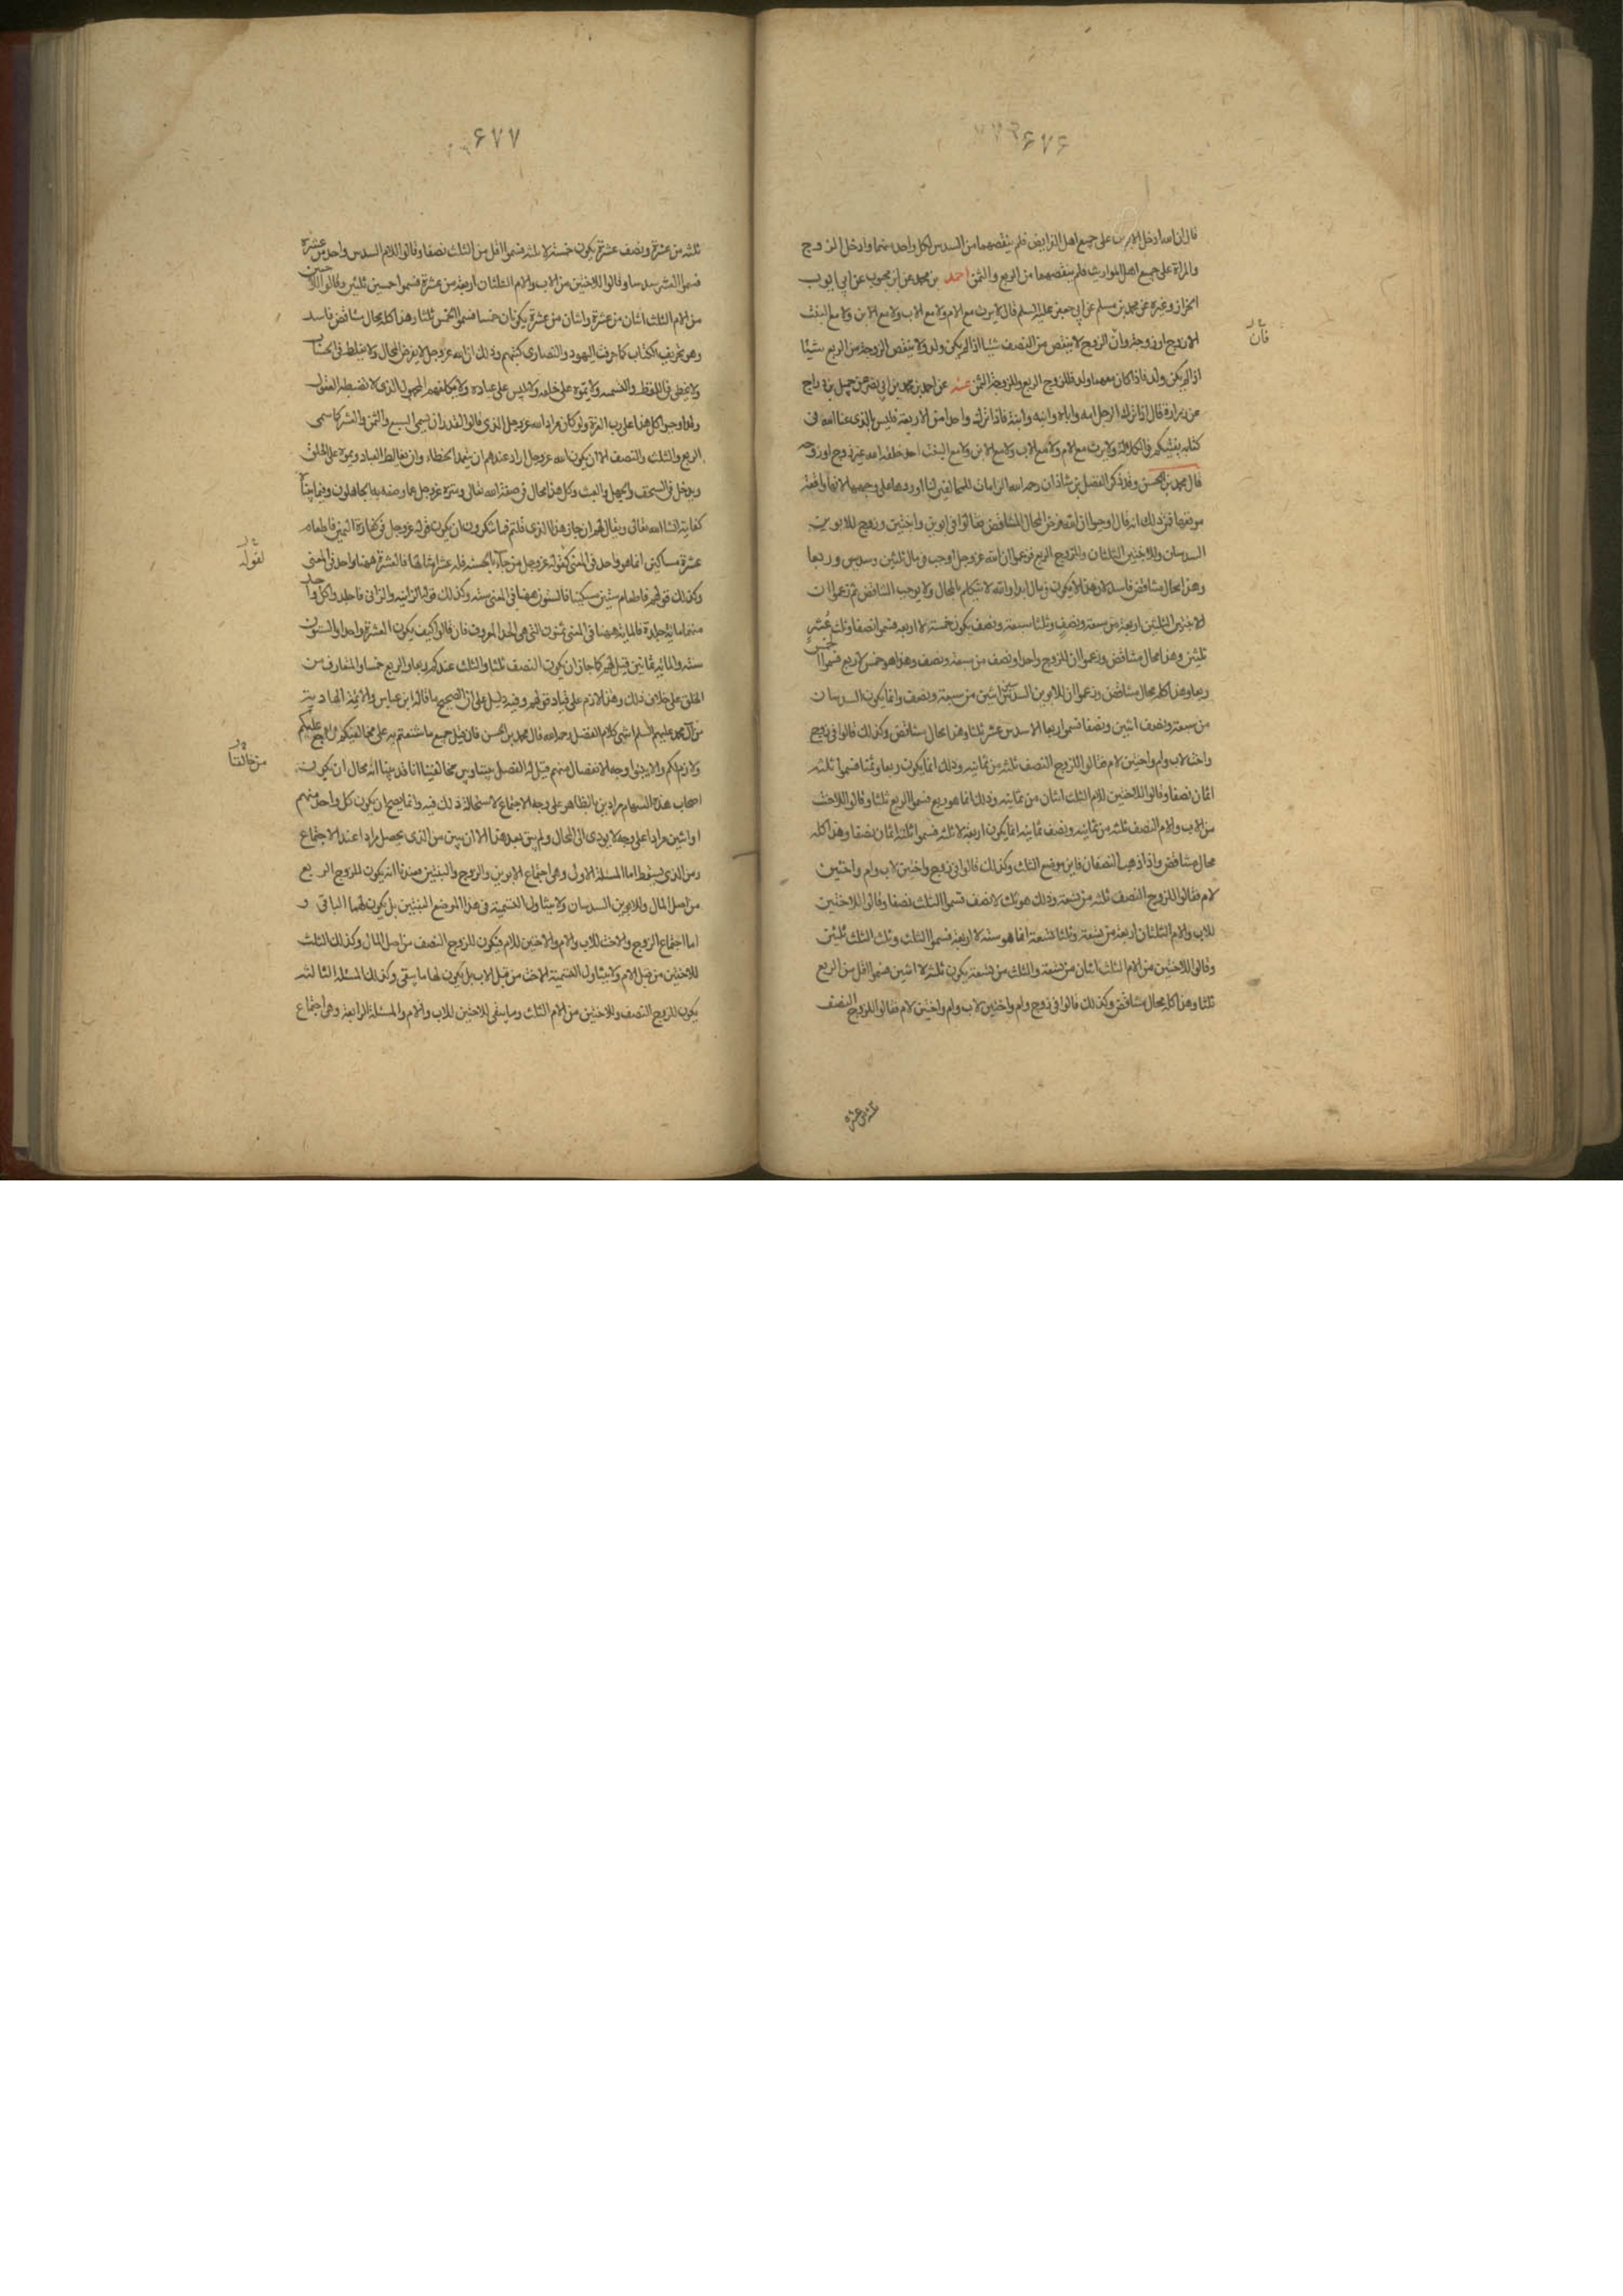 ۶۷۶
قال ان الله ادخل الابوين على جميع اهل الفرايض فلم ينقصهما من السدس لكل واحد منهما وادخل الزوج
والمراة على جميع اهل المواريث فلم ينقصهما من الربع والثمن احمد بن محمد عن ابن محبوب عن ابي ايوب
الخزاز وغيره عن محمد بن مسلم عن ابي جعفر عليه السلم قال لا يرث مع الام ولا مع الاب ولا مع الابن ولا مع البنت
الا زوج او زوجة وان الزوج لا ينقص من النصف شيئا اذا لم يكن ولد ولا ينقص الزوجة من الربع شيئا
اذا لم يكن ولد فاذا كان معهما ولد فللزوج الربع وللزوجة الثمن عنه عن احمد بن محمد بن ابي نصر عن جميل بن دراج
عن زرارة قال اذا ترك الرجل امه واباه وابنه وابنته فاذا ترك واحدا من الاربعة فليس بالذى عنا الله فى
كتابه يفتيكم فى الكلالة ولا يرث مع الام ولا مع الاب ولا مع الابن ولا مع البنت احد خلقه الله غير زوج او زوجه
قال محمد بن الحسن وقد ذكر الفضل بن شاذان رحمه الله الزامات للمخالفين لنا اوردها على وجهها لانها واقعة
موقعها فمن ذلك انه قال اوجبوا ان الله فرض المحال المتناقض فقالوا فى ابوين وابنتين وزوج للابوين
السدسان وللابنتين الثلثان وللزوج الربع فزعموا ان الله عز وجل اوجب فى مال ثلثين وسدسين وربعا
وهذا محال متناقض فاسد لان هذا لا يكون فى مال ابدا والله لا يتكلم بالمحال ولا يوجب التناقض ثم زعموا ان
للابنتين الثلثين اربعة من سبعة ونصف وثلثا سبعة ونصف يكون خمسة لا اربعة فسموا نصفا وثلث عشر
ثلثين وهذا محال متناقض وزعموا ان للزوج واحدا ونصف من سبعة ونصف وهذا هو خمس لا ربع فسموا الخمس
ربعا وهذا كله محال متناقض وزعموا ان للابوين السدسين اثنين من سبعة ونصف وانما يكون السدسان
من سبعة ونصف اثنين ونصفا فسموا ربعا الا سدس عشر ثلثا وهذا محال متناقض وكذلك قالوا فى زوج
واخت لاب وام واختين لام فقالوا للزوج النصف ثلثه من ثمانيه وذلك انما يكون ربعا وثمنا فسموا ثلثه
اثمان نصفا وقالوا للاختين للام الثلث اثنان من ثمانيه وذلك انما هو ربع فسموا الربع ثلثا وقالوا للاخت
من الاب والام النصف ثلثه من ثمانيه ونصف ثمانيه انما يكون اربعة لا ثلثه فسموا ثلثه اثمان نصفا وهذا كله
محال متناقض واذا ذهب النصفان فاين موضع الثلث وكذلك قالوا فى زوج واختين لاب وام واختين
لام فقالوا للزوج النصف ثلثه من تسعة وذلك هو ثلث لا نصف فسموا الثلث نصفا وقالوا للاختين
للاب والام الثلثان اربعة من تسعة وثلثا تسعة انما هو سته لا اربعة فسموا الثلث وثلث الثلث ثلثين
وقالوا للاختين من الام الثلث اثنان من تسعة والثلث من تسعة يكون ثلثه لا اثنين فسموا اقل من الربع
ثلثا وهذا كله محال متناقض وكذلك قالوا فى زوج وام واختين لاب وام واختين لام فقالوا للزوج النصف
فان
ثلثه من عشرة
۶۷۷
ثلثه من عشرة ونصف عشرة يكون خمسة لا ثلثه فسموا اقل من الثلث نصفا وقالوا للام السدس واحد من عشرة
فسموا العشر سدسا وقالوا للاختين من الاب والام الثلثان اربعة من عشرة فسموا خمسين ثلثين وقالوا للاختين
من الام الثلث اثنان من عشرة واثنان من عشرة يكونان خمسا فسموا الخمس ثلثا وهذا كله محال متناقض فاسد
وهو تحريف الكتاب كما حرفت اليهود والنصارى كتبهم وذلك ان الله عز وجل لا يفرض المحال ولا يغلط فى الحساب
ولا يخطى فى اللفظ والقسمه ولا يموه على خلقه ولا يلبس على عباده ولا يكلفهم المجهول الذى لا تضبطه العقول
وقد اوجبوا كل هذا على رب العزة ولو كان مراد الله عز وجل الذى قالوا لقدر ان يسمى السبع والثمن والعشر كما سمى
الربع والثلث والنصف الا ان يكون الله عز وجل اراد عندهم ان يتعمد الخطاء وان يغالط العباد ويموه على الخلق
ويدخل فى السخف والجهل والعبث وكل هذا محال فى صفة الله تعالى وتنزه عز وجل عما وصفه به الجاهلون وفيما بينا
كفاية انشا الله تعالى ويقال لهم ان جاز هذا الذى قلتم فما تنكرون ان يكون قوله عز وجل فى كفارة اليمين فاطعام
عشرة مساكين انما هو واحد فى المعنى كقوله عز وجل من جاء بالحسنه فله عشر امثالها فالعشرة ههنا واحد فى المعنى
وكذلك قولهم فاطعام ستين مسكينا فالستون ههنا فى المعنى سته وكذلك قوله الزانيه والزانى فاجلدوا كل واحد
منهما مائة جلدة فالماية ههنا فى المعنى ثمنون التى هى الحد المعروف فان قالوا كيف يكون العشرة واحدا والستون
سته والمايه ثمانين قيل لهم كما جاز ان يكون النصف ثلثا والثلث عندكم ربعا والربع خمسا والمتعارف من
الخلق على خلاف ذلك وهذا لازم على قياد قولهم وفيه دليل على ان الصحيح ما قاله ابن عباس والائمة الهاديه
من آل محمد عليهم السلم انتهى كلام الفضل رحمه الله قال محمد بن الحسن فان قيل جميع ما شنعتم به على مخالفيكم راجع عليكم
ولازم لكم والا بينوا وجه الانفصال منهم قيل له الفصل بيننا وبين مخالفينا انا قد بينا انه محال ان يكون
اصحاب هذه السهام مرادين بالظاهر على وجه الاجتماع لاستحالة ذلك فيه وانما يصح ان يكون كل واحد منهم
او اثنين مرادا على وجه لا يودى الى المحال ولم يبق بعد هذا الا ان يبين من الذى يحصل مرادا عند الاجتماع
ومن الذى يسقط اما المسئلة الاولى وهى اجتماع الابوين والزوج والبنتين فعندنا انه يكون للزوج الربع
من اصل المال وللابوين السدسان ولا يتناول التسمية فى هذا الموضع البنتين بل يكون لهما الباقى و
اما اجتماع الزوج والاخت للاب والام والاختين للام فيكون للزوج النصف من اصل المال وكذلك الثلث
للاختين من قبل الام ولا يتناول التسمية الاخت من قبل الاب بل يكون لها ما يبقى وكذلك المسئلة الثالثه
يكون للزوج النصف وللاختين من الام الثلث وما يبقى للاختين للاب والام والمسئلة الرابعة وهى اجتماع
لقوله
من خالفنا